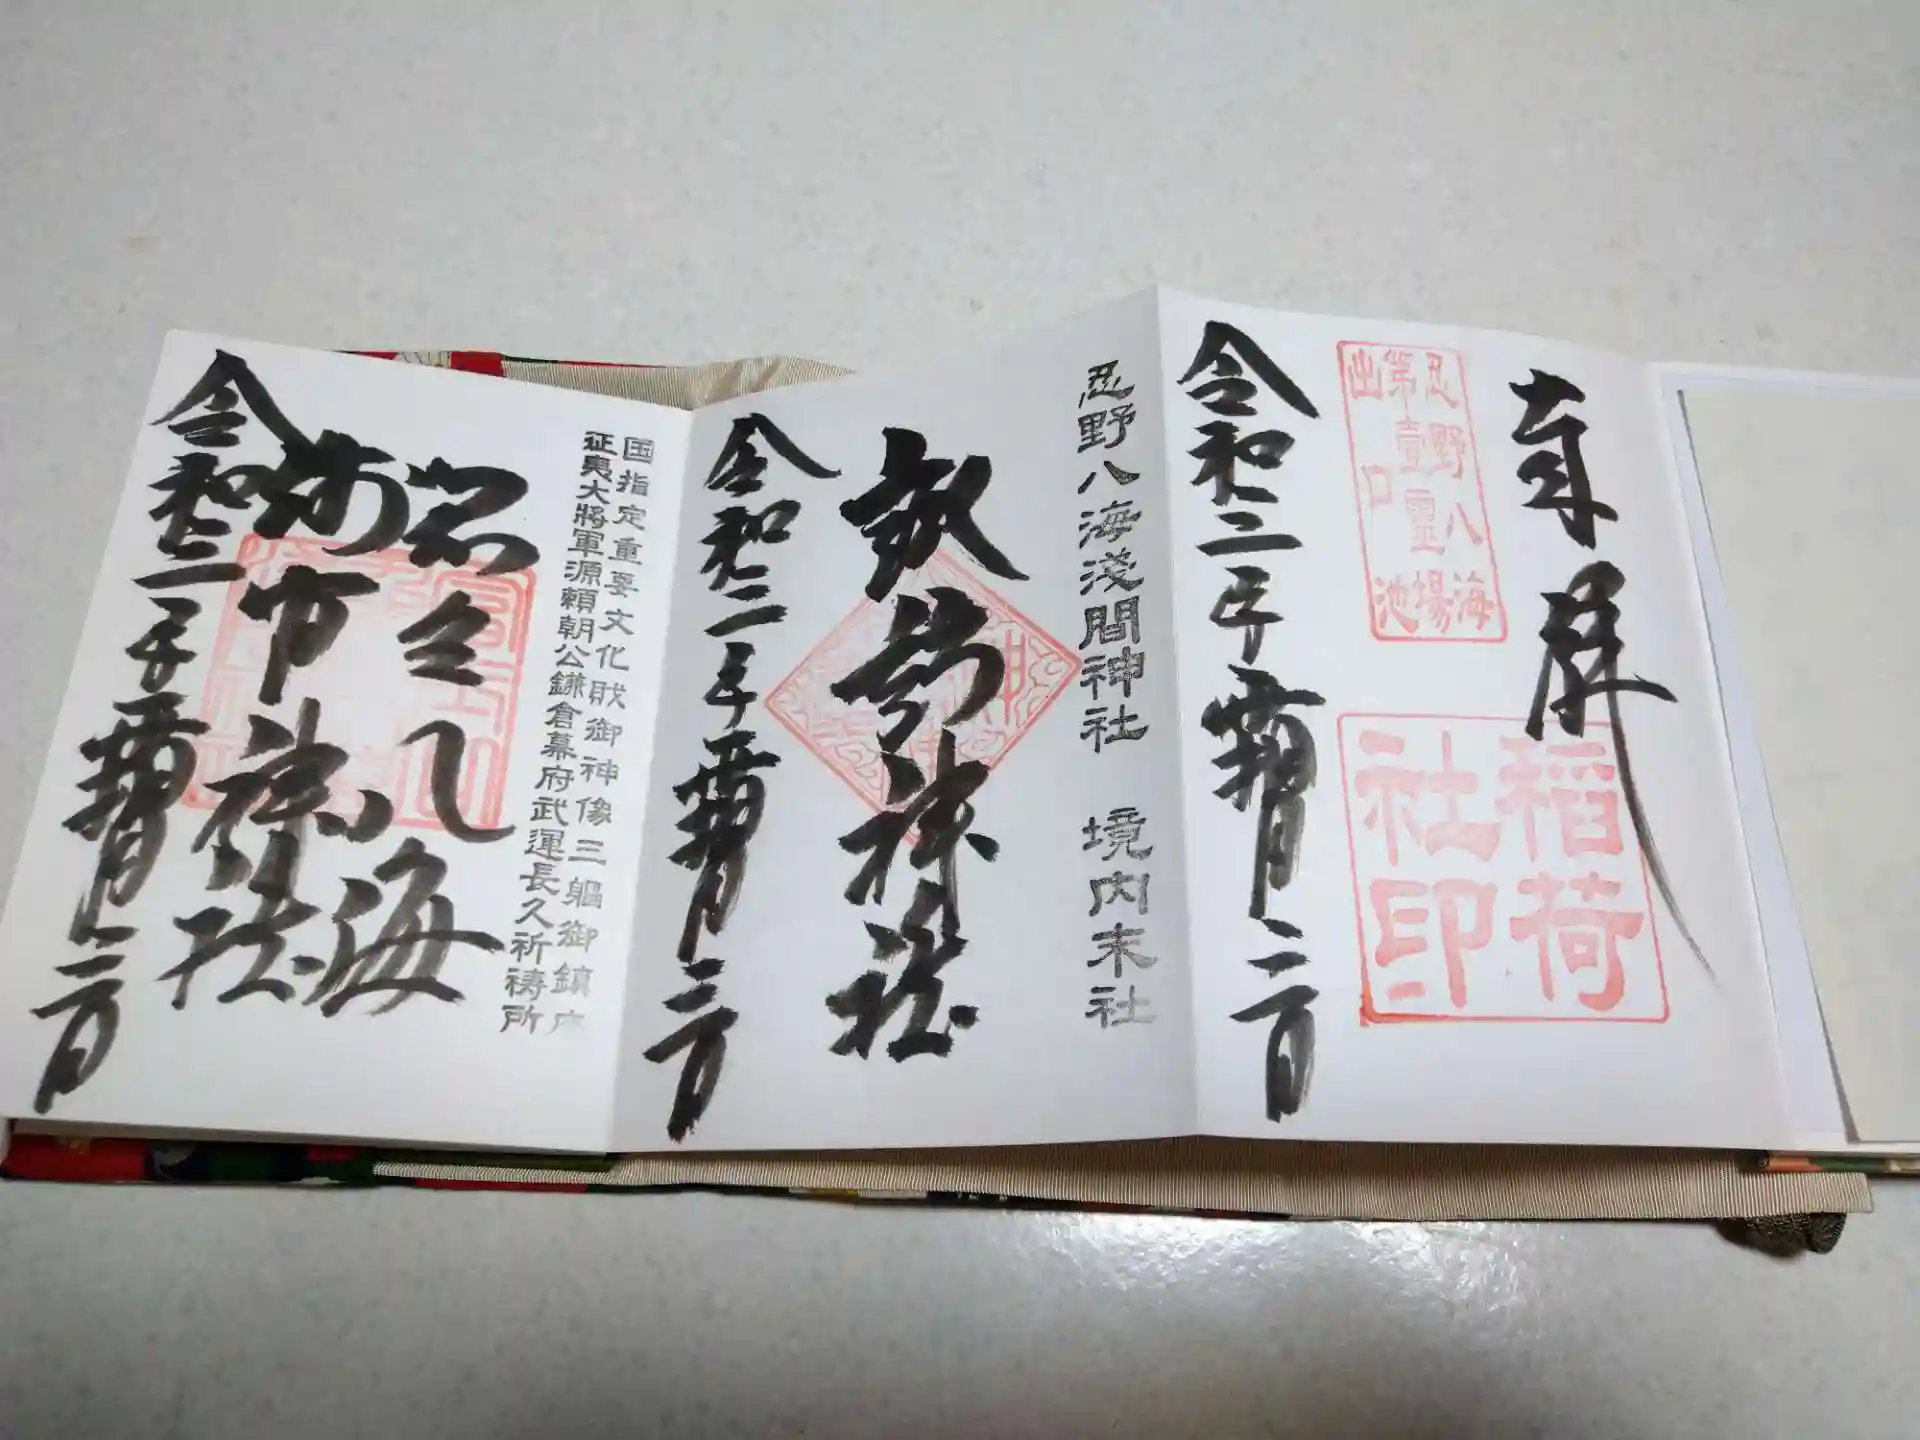 奉拝
忍野八海
第壹靈場
出口池
稲荷
社印
令和二年霜月二日
忍野八海淺間神社 境内末社
神社
令和二年霜月二日
国指定重要文化財御神像三軀御鎮座
征夷大將軍源頼朝公鎌倉幕府武運長久祈祷所
忍野八海
淺間神社
令和二年霜月二日